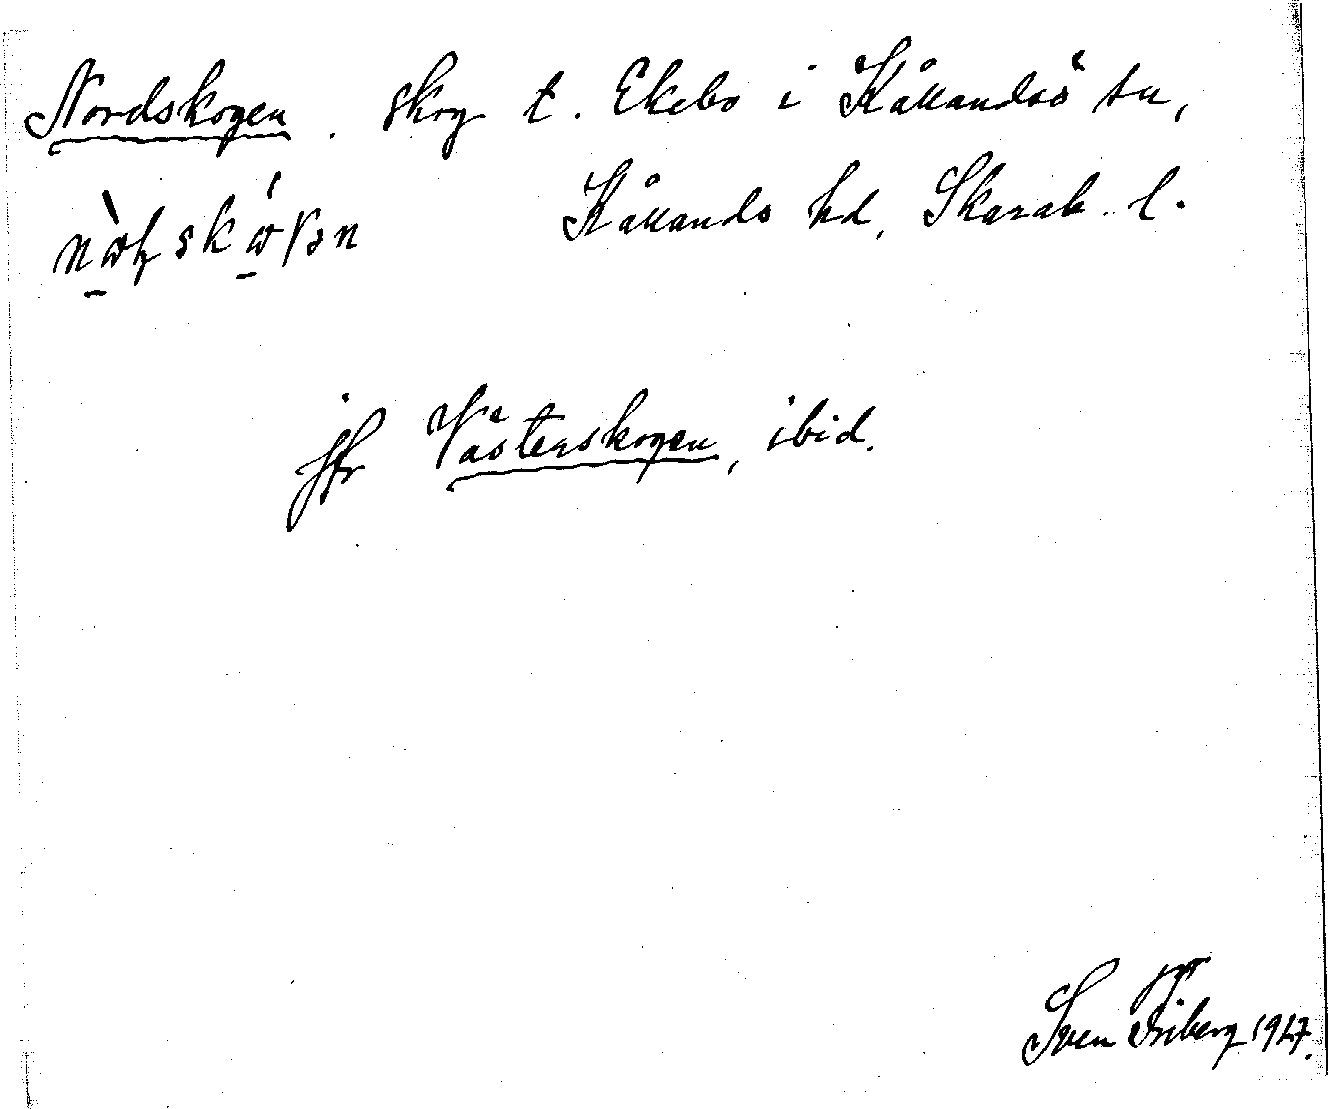 Nordskogen. skog t. Ekebo i Kållandsö sn,
Kållands hd, Skarab. l.
jfr Västerskogen, ibid.
Sven Friberg 1947.